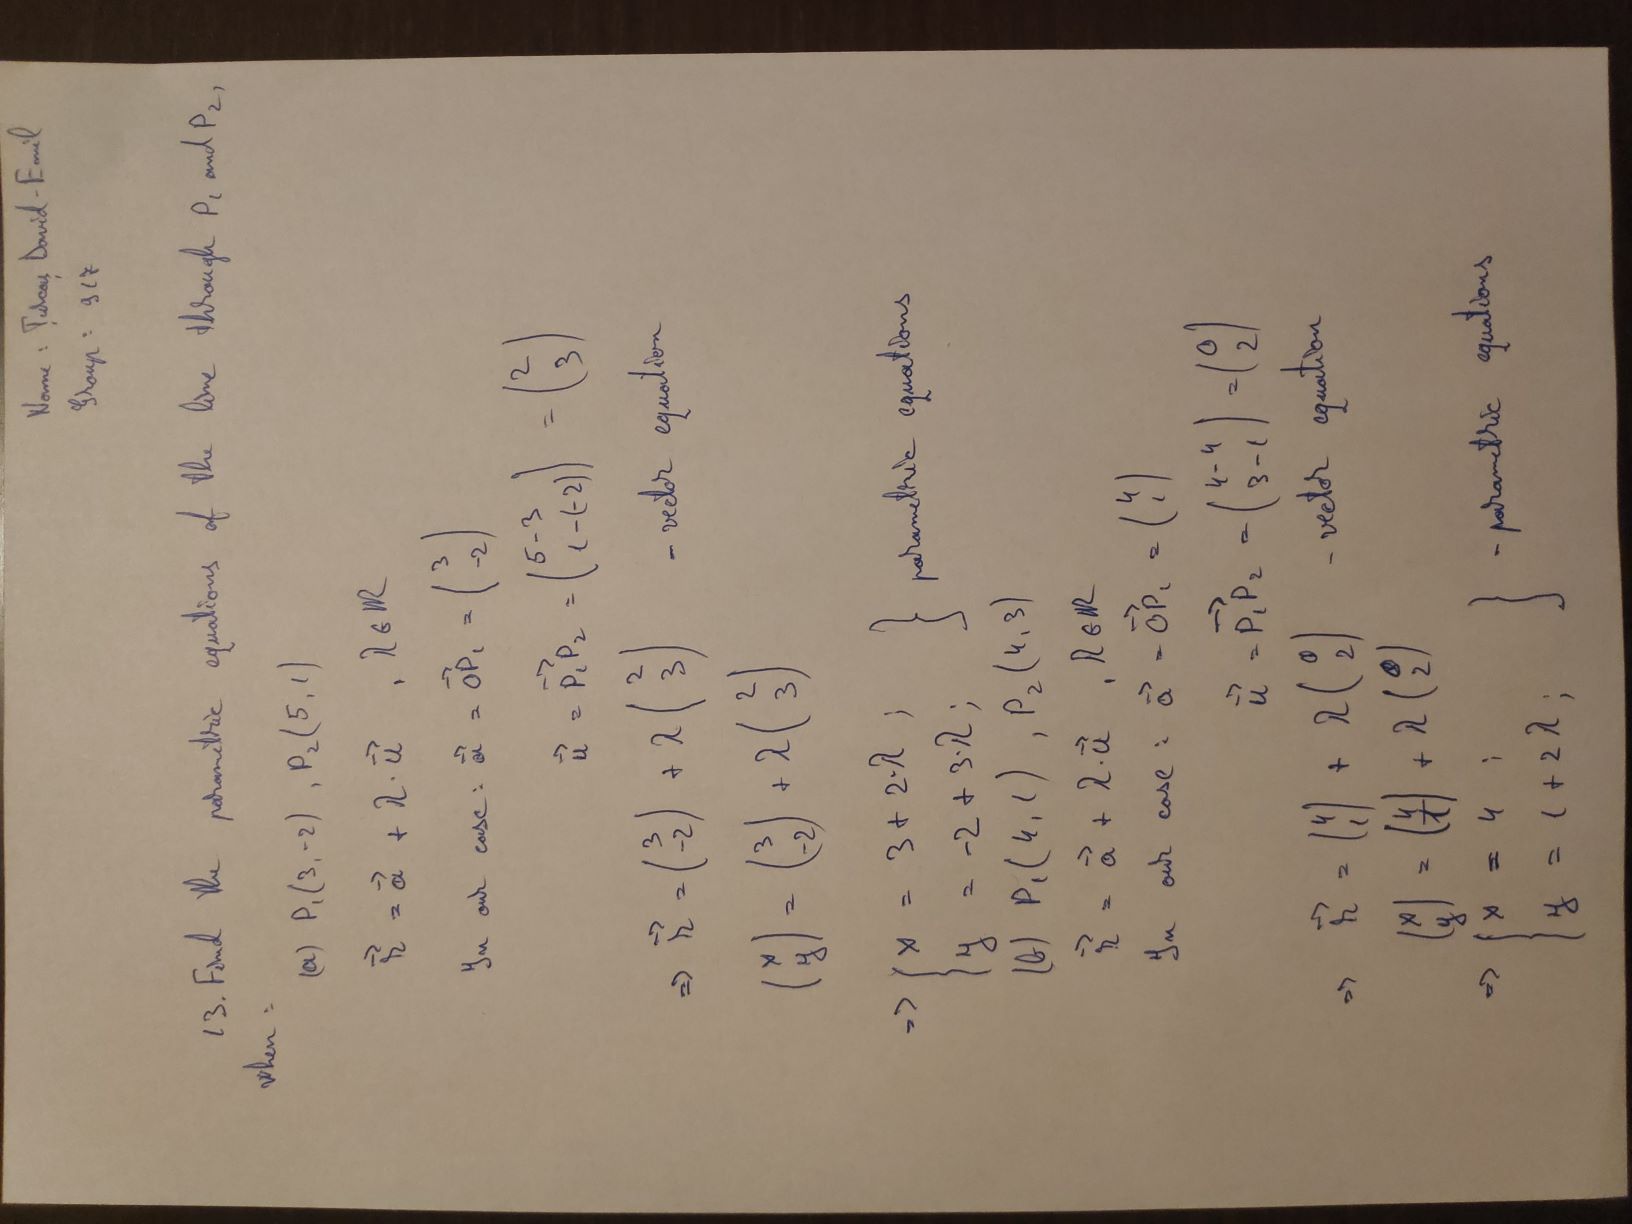 Name : Țurcaș David-Emil
Group : 917
13. Find the parametric equations of the line through P₁ and P₂,
when :
(a) P₁(3,-2) , P₂(5,1)
r⃗ = a⃗ + λ·u⃗ , λ∈ℝ
In our case : a⃗ = O⃗P₁ = (3 -2)
u⃗ = P₁P₂⃗ = (5-3 1-(-2)) = (2 3)
=> r⃗ = (3 -2) + λ (2 3) - vector equation
(x y) = (3 -2) + λ (2 3)
=> { x = 3 + 2·λ ; } parametric equations
y = -2 + 3·λ ;
(b) P₁(4,1) , P₂(4,3)
r⃗ = a⃗ + λ·u⃗ , λ∈ℝ
In our case : a⃗ = O⃗P₁ = (4 1)
u⃗ = P₁P₂⃗ = (4-4 3-1) = (0 2)
=> r⃗ = (4 1) + λ (0 2) - vector equation
(x y) = (4 1) + λ (0 2)
=> { x = 4 ; } - parametric equations
y = 1 + 2λ ;